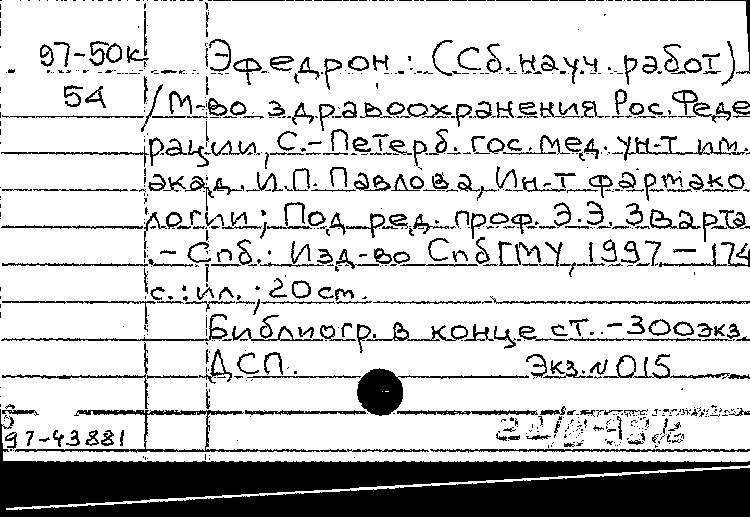 97-50к Эфедрон : (Сб. науч. работ)
54 / М-во здравоохранения Рос. Феде
рации, С.-Петерб. гос. мед. ун-т им.
акад. И.П. Павлова, Ин-т фармако
логии; Под ред. проф. Э.Э. Звартa
.- Спб.: Изд-во СпбГМУ, 1997 — 174
с. : ил. ; 20 см.
Библиогр. в конце ст. - 300 экз.
ДСП. Экз. № 015
97-43881